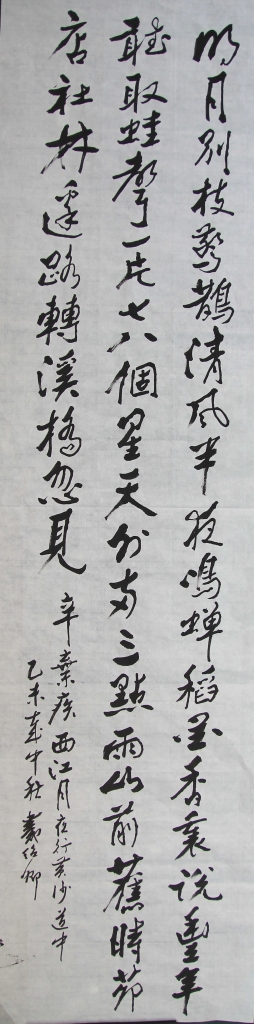 明月別枝驚鵲清風半夜鳴蟬稻花香裏説豐年
聽取蛙聲一片七八個星天外兩三點雨山前舊時茆
店社林邊路轉溪橋忽見
辛棄疾西江月夜行黄沙道中
乙未年中秋